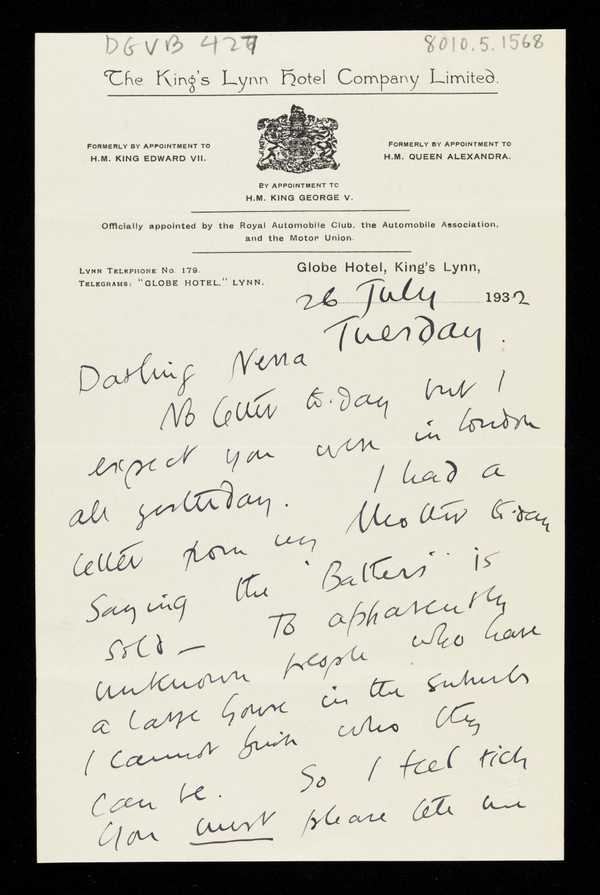 DGVB 427
8010.5.1568
The King's Lynn Hotel Company Limited.
FORMERLY BY APPOINTMENT TO
H.M. KING EDWARD VII.
FORMERLY BY APPOINTMENT TO
H.M. QUEEN ALEXANDRA.
BY APPOINTMENT TO
H.M. KING GEORGE V.
Officially appointed by the Royal Automobile Club, the Automobile Association,
and the Motor Union.
LYNN TELEPHONE No. 179.
TELEGRAMS: "GLOBE HOTEL," LYNN.
Globe Hotel, King's Lynn,
26 July 1932
Tuesday.
Darling Nessa
No letter to-day but I
expect you were in London
all yesterday. I had a
letter from my Mother to-day
saying the "Batters" is
sold — To apparently
unknown people who have
a large house in the suburbs
I cannot think who they
can be. So I feel rich
You must please let me